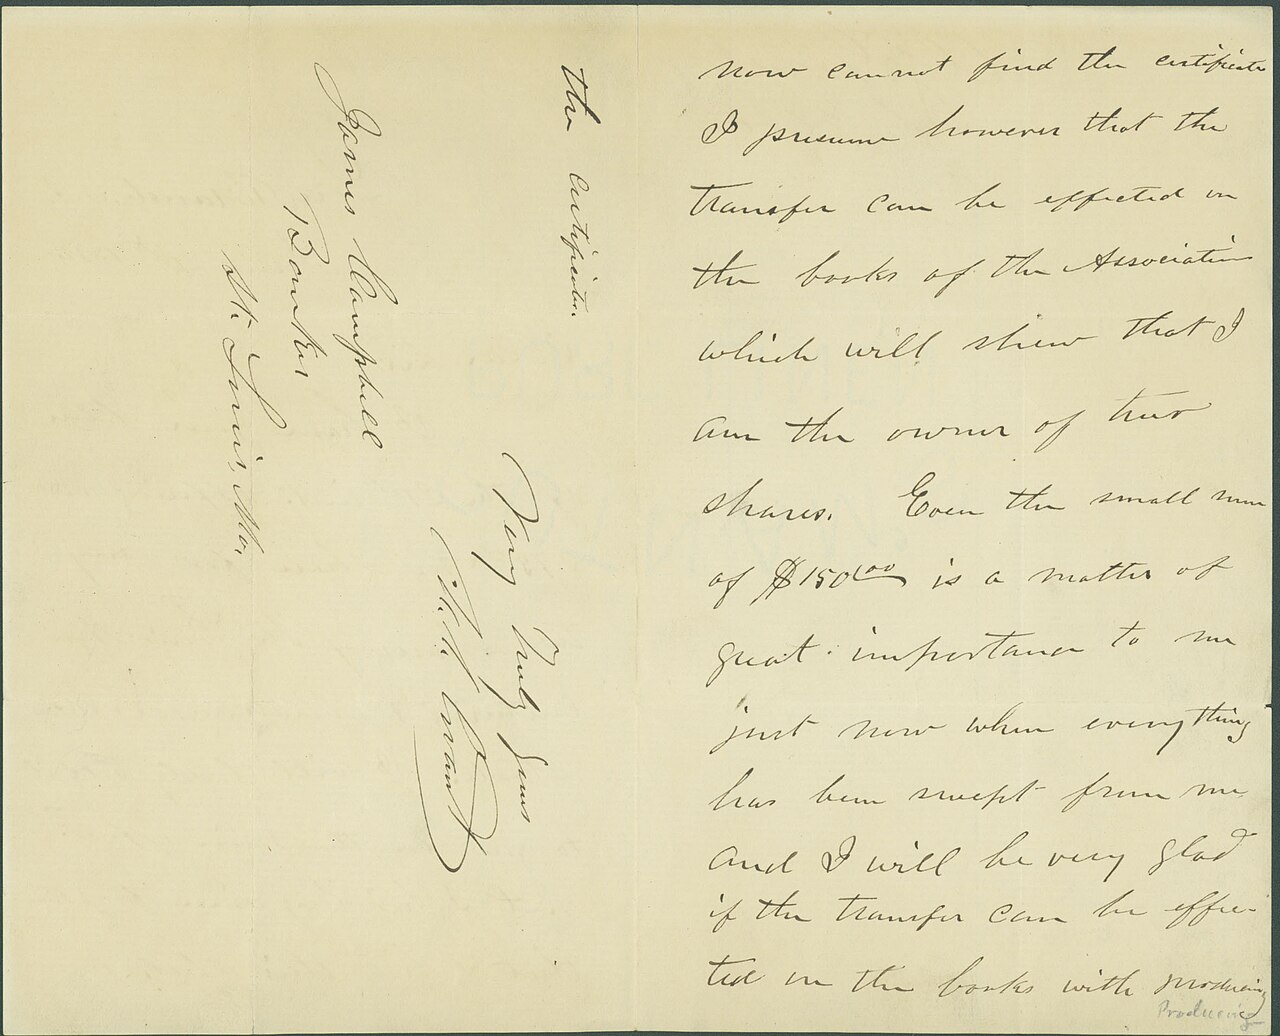 now cannot find the certificate
I presume however that the
transfer can be effected on
the books of the Association
which will shew that I
am the owner of two
shares. Even the small sum
of $150.00 is a matter of
great importance to me
just now when everything
has been swept from me
and I will be very glad
if the transfer can be effec-
ted on the books with producing
Producing
the certificates.
Very Truly Yours
U. S. Grant
James Campbell
Banker
St. Louis, Mo,